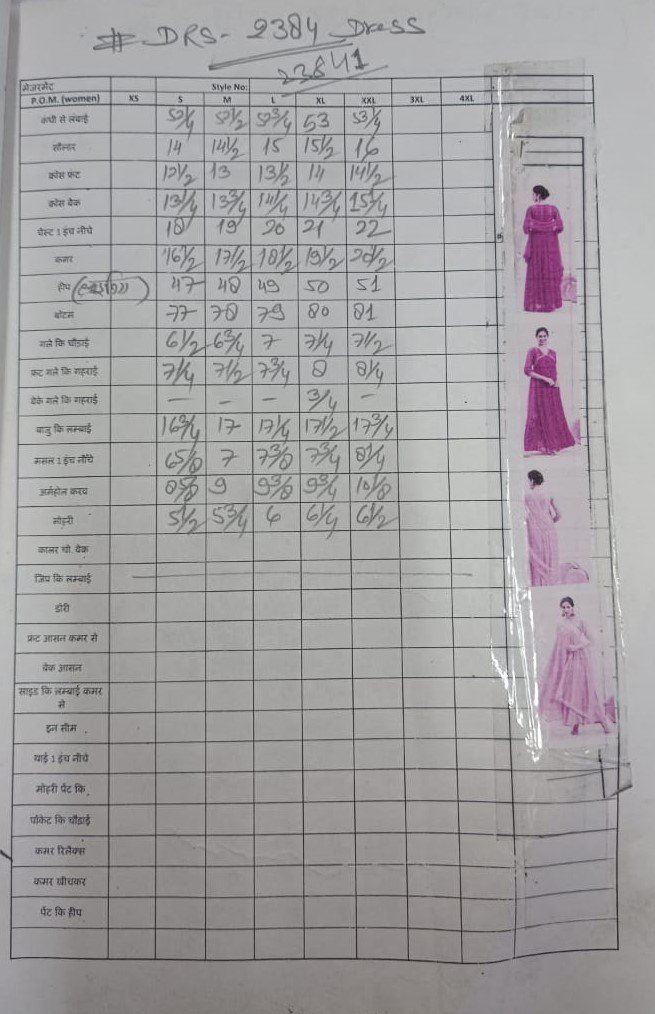 # DRS - 2384 Dress
23841
मेजरमेंट Style No:
P.O.M. (women) XS S M L XL XXL 3XL 4XL
कंधी से लंबाई 52/4 52 1/2 52 3/4 53 53/4
सोल्डर 14 14 1/2 15 15 1/2 16
क्रोस फ्रंट 12 1/2 13 13 1/2 14 14 1/2
क्रोस बेक 13 1/4 13 3/4 14 1/4 14 3/4 15 1/4
चेस्ट 1 इंच नीचे 18 19 20 21 22
कमर 16 1/2 17 1/2 18 1/2 19 1/2 20 1/2
हीप 47 48 49 50 51
बोटम 77 78 79 80 81
गले कि चौड़ाई 6 1/2 6 3/4 7 7 1/4 7 1/2
फ्रंट गले कि गहराई 7 1/4 7 1/2 7 3/4 8 8 1/4
बेक गले कि गहराई - - - 3/4 -
बाजु कि लम्बाई 16 3/4 17 17 1/4 17 1/2 17 3/4
मसल 1 इंच नीचे 6 5/8 7 7 3/8 7 3/4 8 1/4
अर्महोल करव 8 5/8 9 9 3/8 9 3/4 10 1/8
मोहरी 5 1/2 5 3/4 6 6 1/4 6 1/2
कालर चौ. बेक
जिप कि लम्बाई
डोरी
फ्रंट आसन कमर से
बेक आसन
साइड कि लम्बाई कमर
से
इन सीम
थाई 1 इंच नीचे
मोहरी पेंट कि
पॉकेट कि चौड़ाई
कमर रिलैक्स
कमर खीचकर
पेंट कि हीप